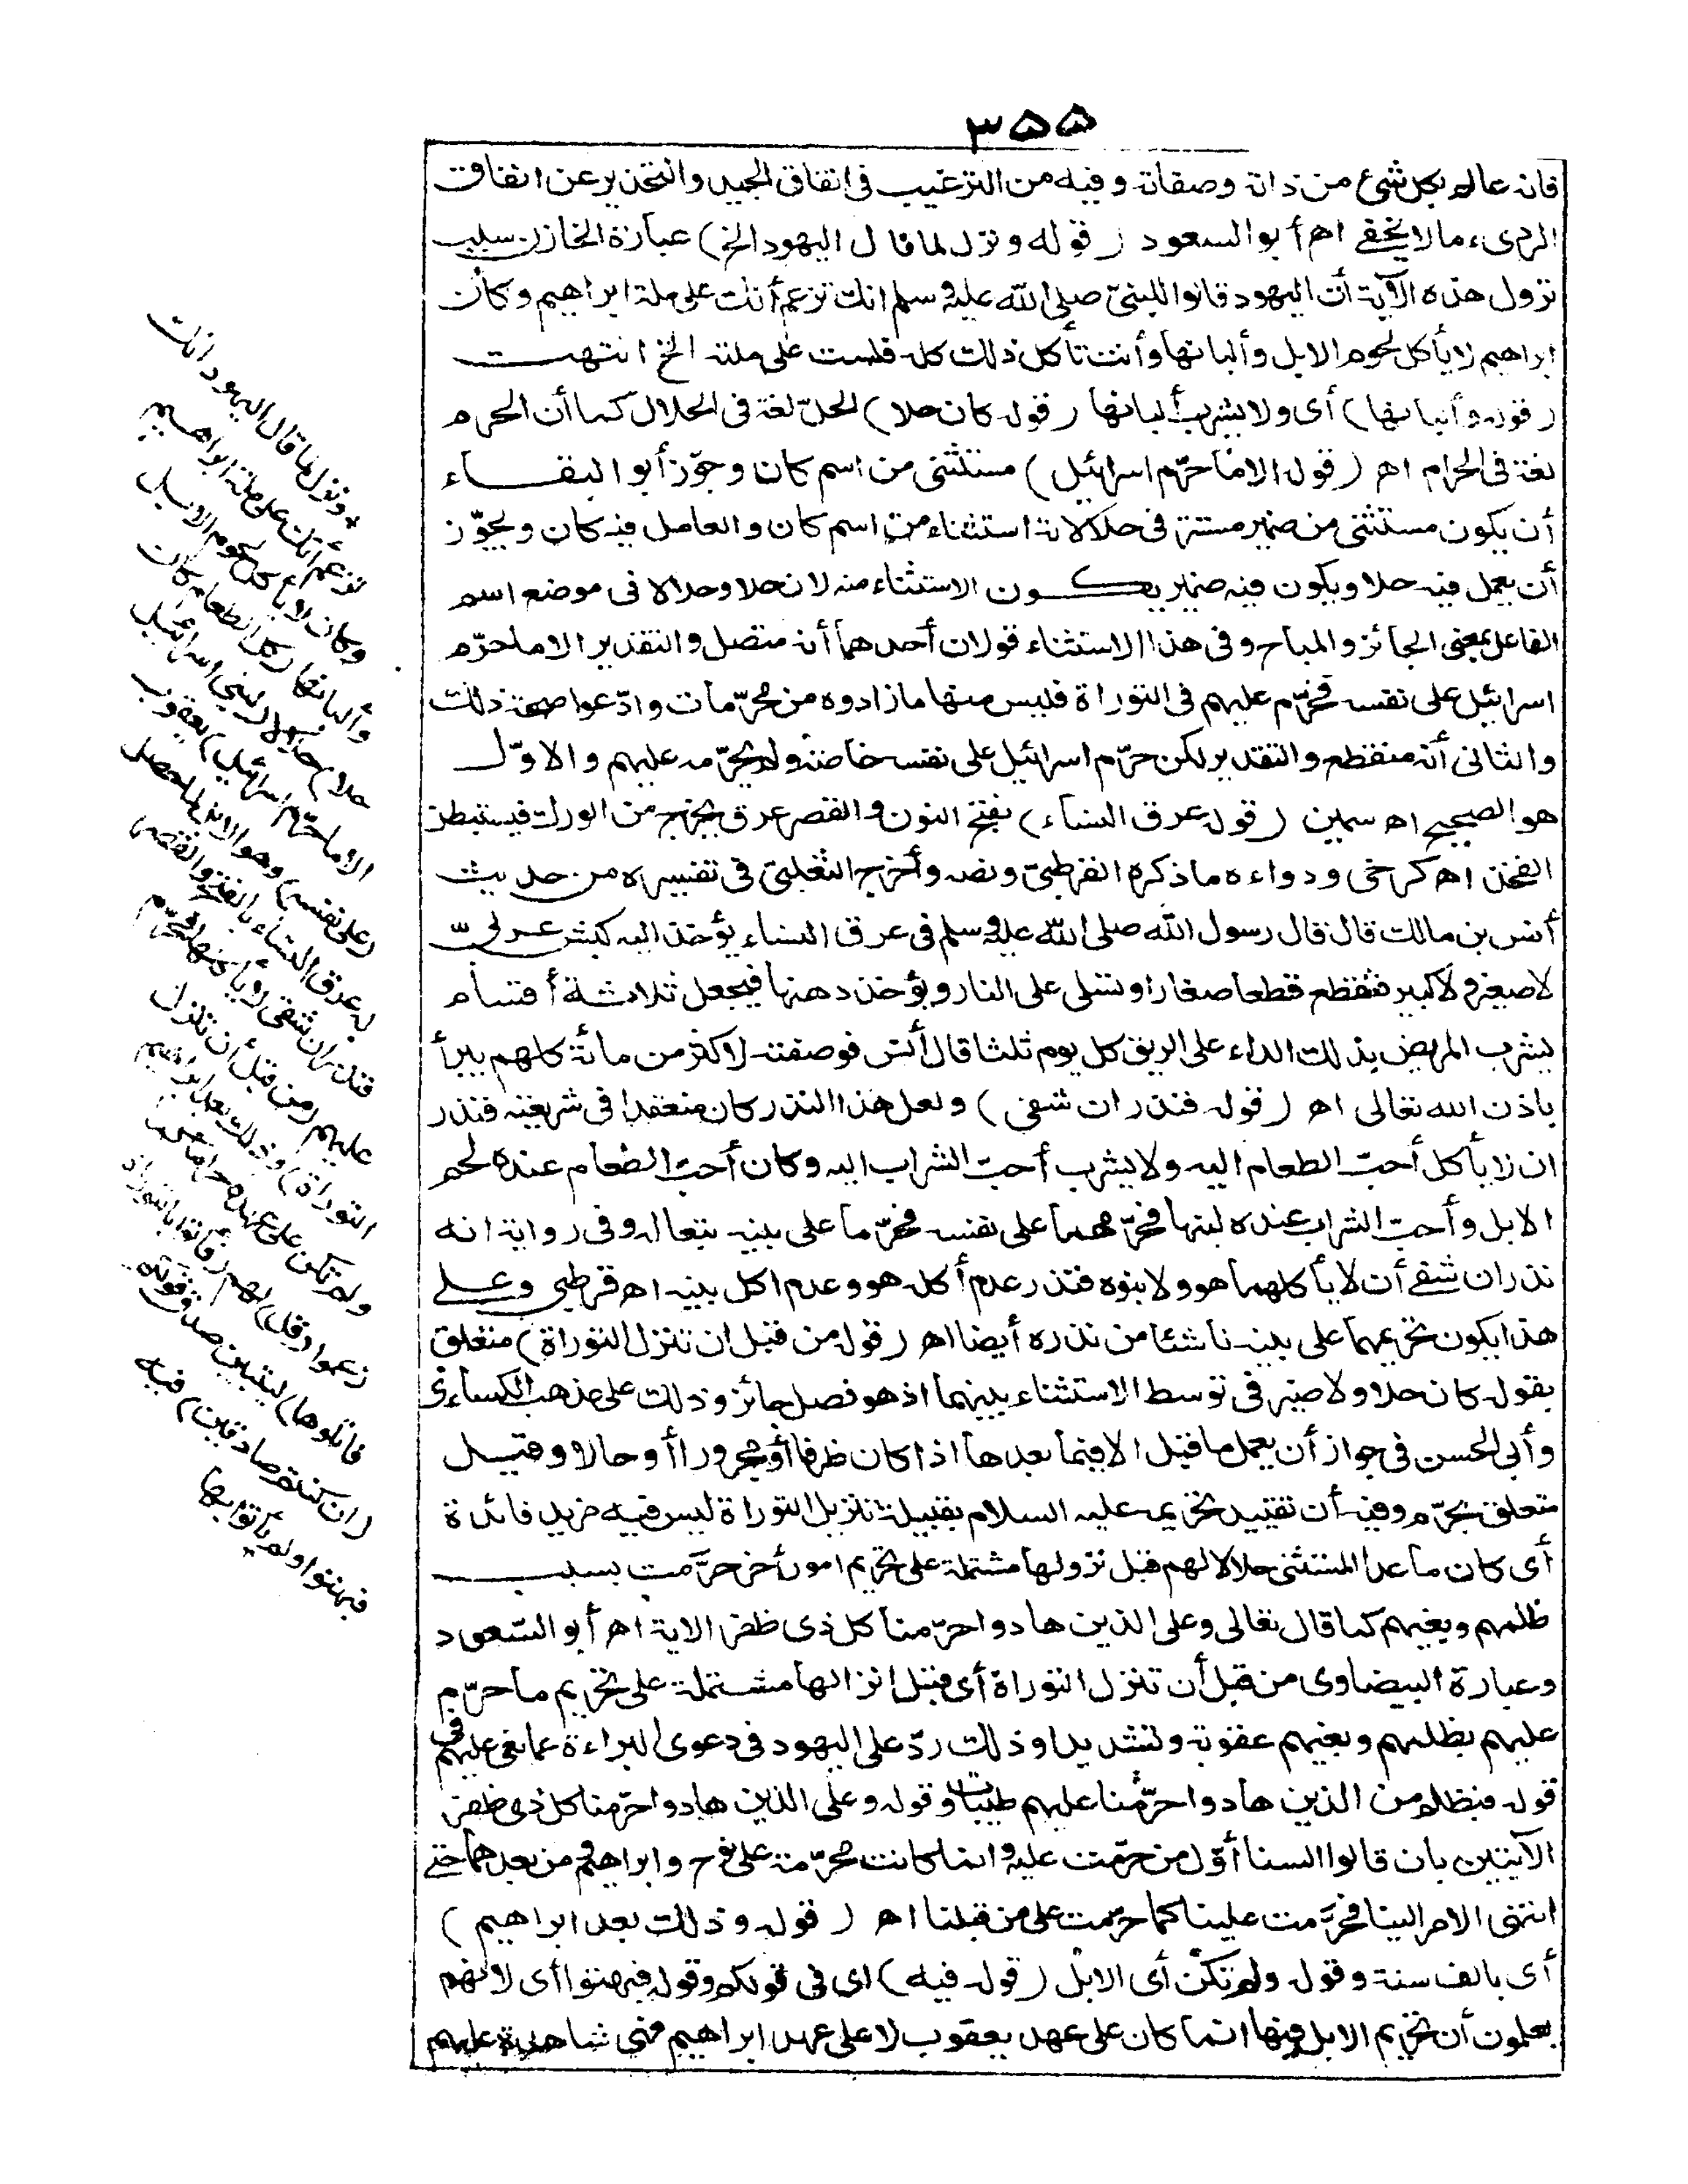 ٣٥٥
فانه عالم بكل شئ من ذاته وصفاته وفيه من الترغيب فى انفاق الجيد والتحذير عن انفاق
الردىء مالا يخفى اه أبو السعود (قوله ونزل لما قال اليهود الخ) عبارة الخازن سبب
نزول هذه الآية أن اليهود قالوا للنبىّ صلى الله عليه وسلم انك تزعم أنك على ملة ابراهيم وكان
ابراهيم لا يأكل لحوم الابل وألبانها وأنت تأكل ذلك كله فلست على ملته الخ انتهت
(قوله وألبانها) أى ولا يشرب ألبانها (قوله كان حلا) الحلّ لغة فى الحلال كما أن الحرم
لغة فى الحرام اه (قوله الا ما حرّم اسرائيل) مستثنى من اسم كان وجوّز أبو البقاء
أن يكون مستثنى من ضمير مستتر فى حلا لانه استثناء من اسم كان والعامل فيه كان ويجوّز
أن يعمل فيه حلا ويكون فيه ضمير يكون الاستثناء منه لان حلا وحلالا فى موضع اسم
الفاعل بمعنى الجائز والمباح وفى هذا الاستثناء قولان أحدهما أنه متصل والتقدير الا ما حرّم
اسرائيل على نفسه فحرّم عليهم فى التوراة فليس منها ما زادوه من محرّمات وادّعوا صحة ذلك
والثانى أنه منقطع والتقدير لكن حرّم اسرائيل على نفسه خاصة ولم يحرّمه عليهم والاوّل
هو الصحيح اه سمين (قوله عرق النساء) بفتح النون والقصر عرق يخرج من الورك فيستبطن
الفخذ اه كرخى ودواءه ما ذكره القرطبىّ ونصه وأخرج الثعلبىّ فى تفسيره من حديث
أنس بن مالك قال قال رسول الله صلى الله عليه وسلم فى عرق النساء يؤخذ الية كبش عربىّ
لا صغير ولا كبير فتقطع قطعا صغارا وتسلى على النار ويؤخذ دهنها فيجعل ثلاثة أقسام
يشرب المريض بذلك الداء على الريق كل يوم ثلثا قال أنس فوصفته لاكثر من مائة كلهم يبرأ
باذن الله تعالى اه (قوله فنذر ان شفى) ولعل هذا النذر كان منعقدا فى شريعته فنذر
ان لا يأكل أحبّ الطعام اليه ولا يشرب أحبّ الشراب اليه وكان أحبّ الطعام عنده لحم
الابل وأحبّ الشراب عنده لبنها فحرّمهما على نفسه فحرّما على بنيه تبعا له وفى رواية انه
نذر ان شفى أن لا يأكلهما هو ولا بنوه فنذر عدم أكله هو وعدم اكل بنيه اه قرطبى وعلى
هذا يكون تحريمهما على بنيه ناشئا من نذره أيضا اه (قوله من قبل ان تنزل التوراة) متعلق
بقوله كان حلا ولا ضير فى توسط الاستثناء بينهما اذ هو فصل جائز وذلك على مذهب الكساءى
وأبى الحسن فى جواز أن يعمل ما قبل الا فيما بعدها اذا كان ظرفا أو مجرورا أو حالا وقيل
متعلق بحرّم وفيه أن تقييد تحريمه عليه السلام بقبيلة تنزيل التوراة ليس فيه مزيد فائدة
أى كان ما عدا المستثنى حلالا لهم قبل نزولها مشتملة على تحريم امور أخر حرّمت بسبب
ظلمهم وبغيهم كما قال تعالى وعلى الذين هادوا حرّمنا كل ذى ظفر الاية اه أبو السّعود
وعبارة البيضاوى من قبل أن تنزل التوراة أى قبل انزالها مشتملة على تحريم ما حرّم
عليهم بظلمهم وبغيهم عقوبة وتشديدا وذلك ردّ على اليهود فى دعوى البراءة عما نعى عليهم فى
قوله فبظلم من الذين هادوا حرّمنا عليهم طيبات وقوله وعلى الذين هادوا حرّمنا كل ذى ظفر
الآيتين بان قالوا السنا أوّل من حرّمت عليه وانما كانت محرّمة على نوح وابراهيم ومن بعدهما حتى
انتهى الامر الينا فحرّمت علينا كما حرّمت على من قبلنا اه (قوله وذلك بعد ابراهيم)
أى بالف سنة وقوله ولم تكن أى الابل (قوله فيه) اى فى قولكم وقوله فبهتوا أى لانهم
يعلمون أن تحريم الابل فيها انما كان على عهد يعقوب لا على عهد ابراهيم فهى شاهدة عليهم
ونزل لما قال اليهود انك
تزعم أنك على ملة ابراهيم
وكان لا يأكل لحوم الابل
وألبانها (كل الطعام كان
حلا) حلالا (لبنى اسرائيل
الا ما حرّم اسرائيل) يعقوب
(على نفسه) وهو الابل لما حصل
له عرق النساء بالفتح والقصر
فنذر ان شفى لا يأكلها فحرّم
عليهم (من قبل أن تنزل
التوراة) وذلك بعد ابراهيم
ولم تكن على عهده حراما كما
زعموا (قل) لهم (فأتوا بالتوراة
فاتلوها) ليتبين صدق قولكم
(ان كنتم صادقين) فيه
فبهتوا ولم يأتوا بها